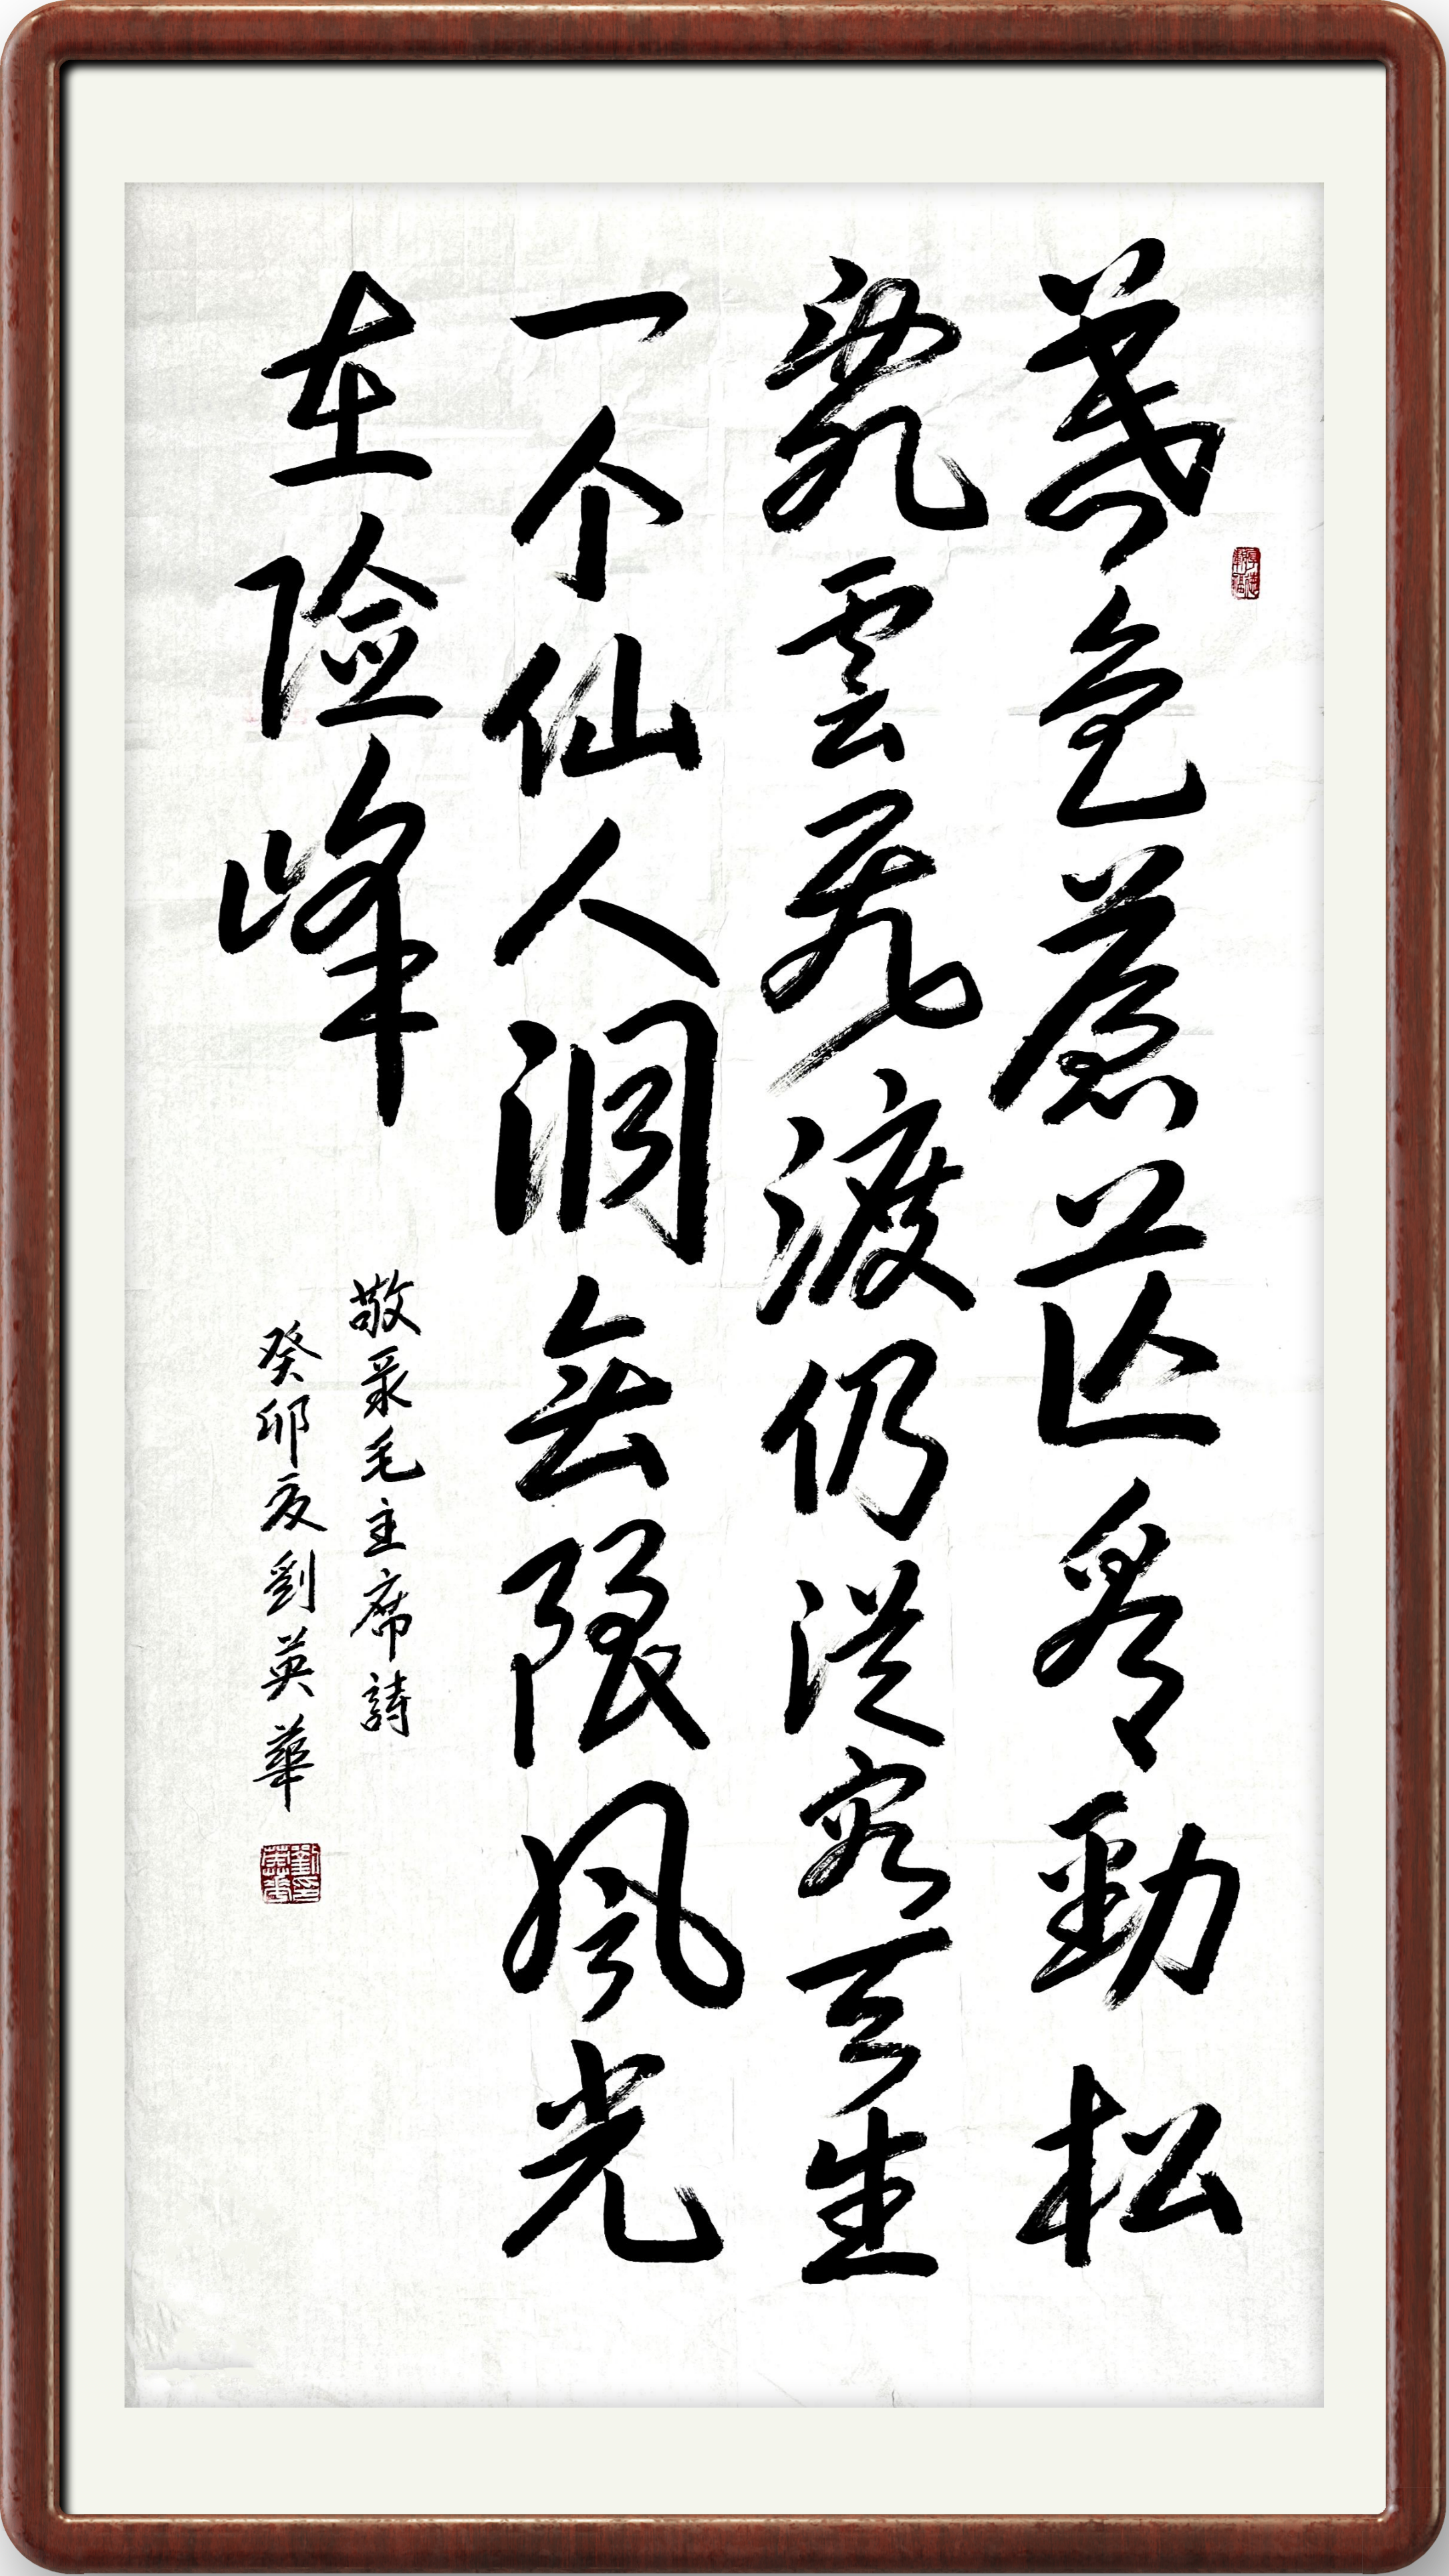 暮色蒼茫看勁松
亂雲飛渡仍從容天生
一个仙人洞無限風光
在险峰
敬录毛主席詩
癸卯夏劉英華